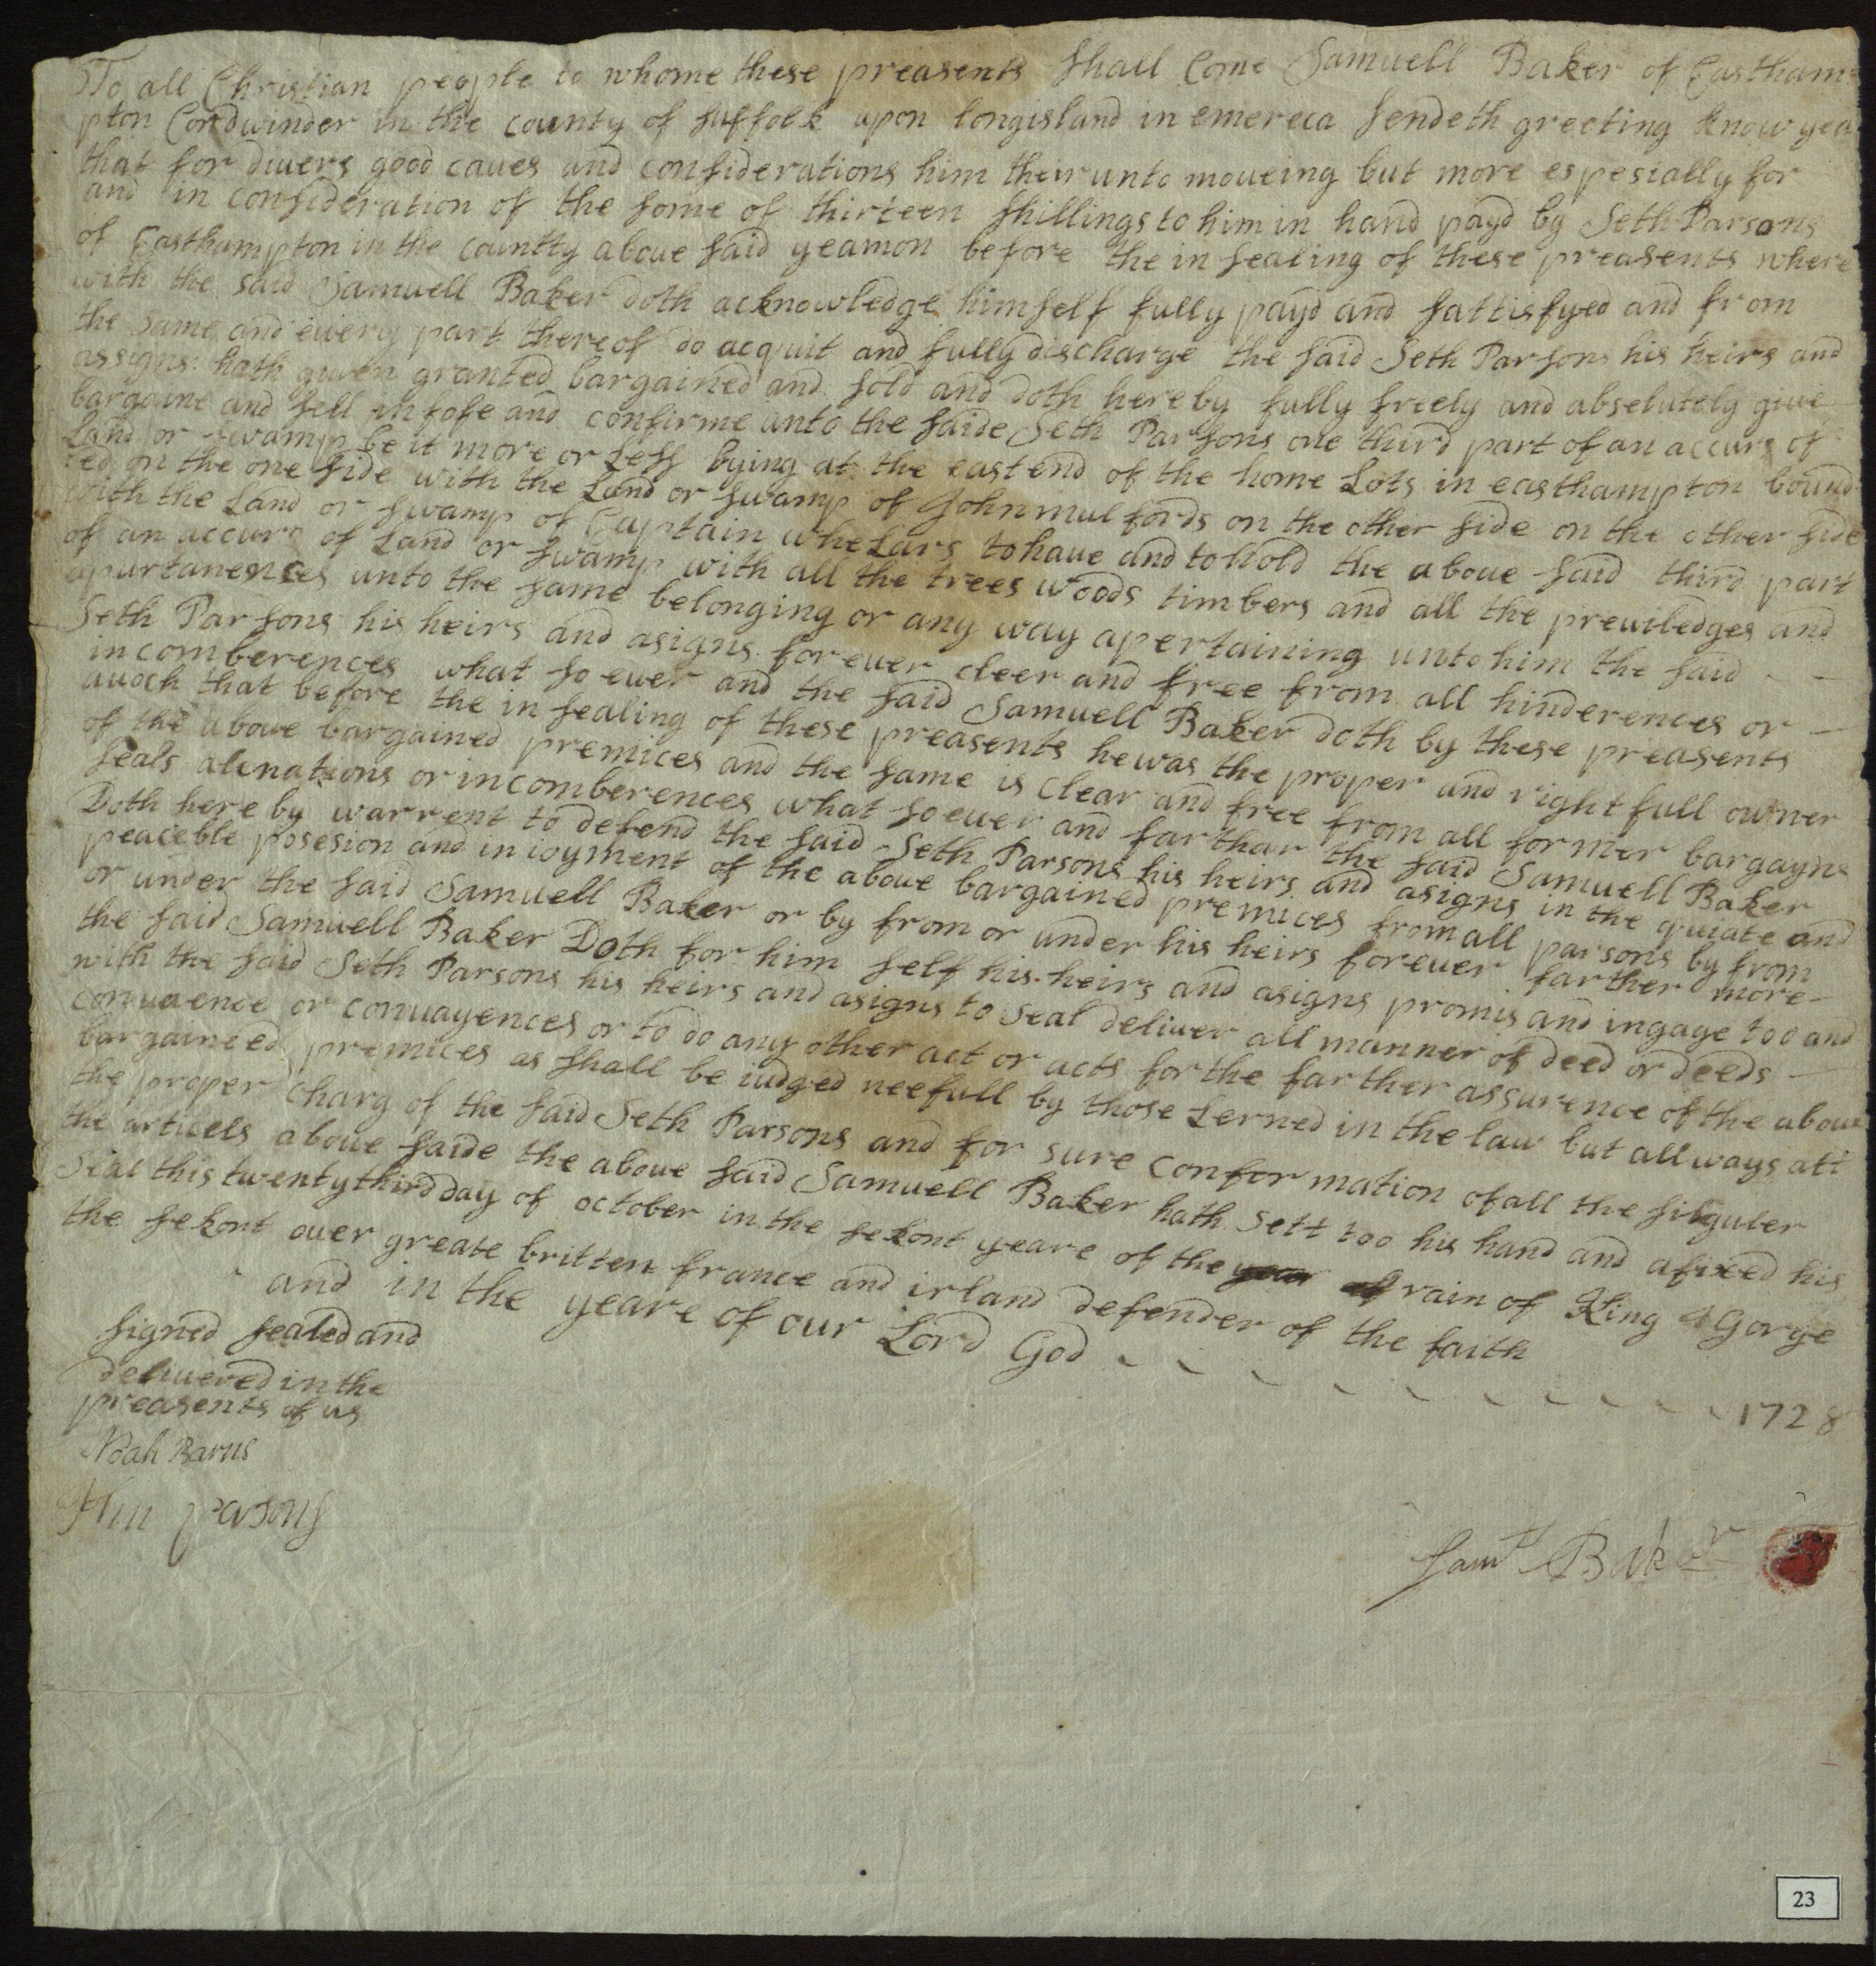 To all Christian people to whome these preasents shall Come Samuell Baker of Eastham=
pton Cordwinder in the county of suffolk upon longisland in emereca sendeth greeting know yea
that for divers good caues and considerations him their unto moueing but more espesially for
and in consideration of the some of thirteen shillings to him in hand payd by Seth Parsons
of Easthampton in the countty aboue said yeamon before the in sealing of these preasents where
with the said Samuell Baker doth acknowledge himself fully payd and sattisfyed and from
the same and every part thereof do acquit and fully discharge the said Seth Parsons his heirs and
assigns: hath given granted bargained and sold and doth here by fully freely and abselutely giue
bargaine and sell infofe and confirme unto the saide Seth Parsons one third part of an accurs of
Land or swamp be it more or Less bying at the east end of the home Lots in easthampton bound=
ed on the one side with the Land or swamp of John mulfords on the other side on the other side
with the Land or swamp of Captain whelars to haue and to hold the aboue said third part
of an accurs of Land or swamp with all the trees woods timbers and all the preuiledges and
apurtanences unto the same belonging or any way apertaining unto him the said
Seth Parsons his heirs and asigns for euer cleer and free from all hinderences or
incomberences what so ever and the said Samuell Baker doth by these preasents
auoch that before the in sealing of these preasents he was the proper and right full owner
of the aboue bargained premices and the same is clear and free from all former bargayns
seals alinations or incomberences what so euer and farthar the said Samuell Baker
Doth here by warrent to defend the said Seth Parsons his heirs and asigns in the quiate and
peaceble posesion and in ioyment of the aboue bargained premices from all parsons by from
or under the said Samuell Baker or by from or under his heirs foreuer farther more
the said Samuell Baker Doth for him self his heirs and asigns promis and ingage too and
with the said Seth Parsons his heirs and asigns to seal deliuer all manner of deed or deeds
conuaence or conuayences or to do any other act or acts for the farther assurence of the aboue
bargained premices as shall be iudged neefull by those Lerned in the law but all ways att
the proper charg of the said Seth Parsons and for sure confor mation of all the singuler
the articels aboue saide the aboue said Samuell Baker hath sett too his hand and afixed his
Seal this twenty third day of october in the sekont yeare of the rain of King Gorge
the sekont ouer greate britten france and irland defender of the faith
and in the yeare of our Lord God 1728
signed sealed and
deliuered in the
preasents of us
Noah Barns
parsons
Sam^ll Baker
23